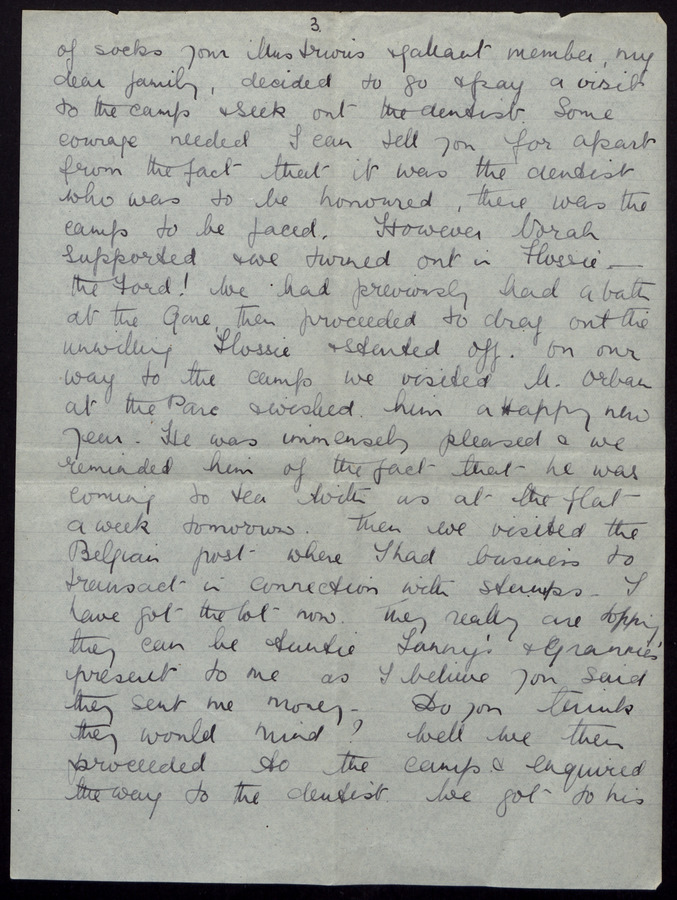 3.
of socks your illustrious & gallant member, my
dear family, decided to go & pay a visit
to the camp & seek out the dentist. Some
courage needed I can tell you for apart
from the fact that it was the dentist
who was to be honoured, there was the
camp to be faced. However Norah
supported & we turned out in Flossie —
the Ford! We had previously had a bath
at the Gare, then proceeded to drag out the
unwilling Flossie & started off. On our
way to the camp we visited M. Orban
at the Parc & wished him a Happy new
year. He was immensely pleased & we
reminded him of the fact that he was
coming to tea with us at the flat
a week tomorrow. Then we visited the
Belgian post where I had business to
transact in connection with stamps - I
have got the lot now. They really are topping
they can be Auntie Fanny's & Grannie's
present to me as I believe you said
they sent me money - Do you think
they would mind? Well we then
proceeded to the camp & enquired
the way to the dentist. We got to his